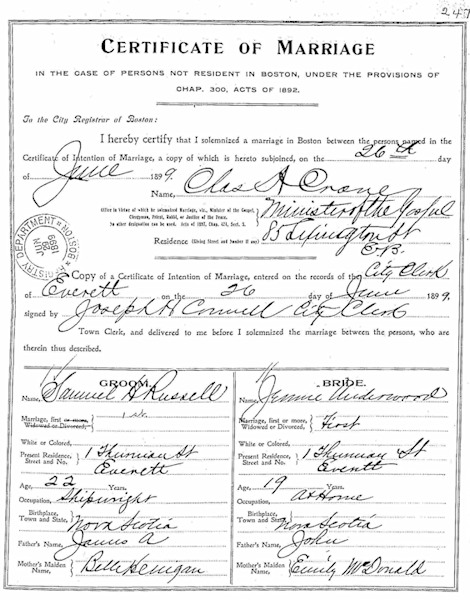 247
CERTIFICATE OF MARRIAGE
IN THE CASE OF PERSONS NOT RESIDENT IN BOSTON, UNDER THE PROVISIONS OF
CHAP. 300, ACTS OF 1892.
To the City Registrar of Boston:
I hereby certify that I solemnized a marriage in Boston between the persons named in the
Certificate of Intention of Marriage, a copy of which is hereto subjoined, on the 26th day
of June 1899.
Name, Chas A Crane
Office in virtue of which he solemnized Marriage, viz., Minister of the Gospel,
Clergyman, Priest, Rabbi, or Justice of the Peace.
No other designation can be used. Acts of 1897, Chap. 424, Sect. 2.
Minister of the Gospel
Residence (Giving Street and Number if any) 85 Lexington St
E.B.
REGISTRY DEPARTMENT BOSTON
JUN
1899
Copy of a Certificate of Intention of Marriage, entered on the records of the City Clerk
of Everett on the 26 day of June 1899.
signed by Joseph H Cannell City Clerk
Town Clerk, and delivered to me before I solemnized the marriage between the persons, who are
therein thus described.
GROOM.
Name, Samuel H Russell
Marriage, first or more, Widowed or Divorced, 1st.
White or Colored,
Present Residence, Street and No. 1 Thurman St
Everett
Age, 22 Years.
Occupation, Shipwright
Birthplace, Town and State, Nova Scotia
Father's Name, James A
Mother's Maiden Name, Belle Kerrigan
BRIDE.
Name, Jennie Underwood
Marriage, first or more, Widowed or Divorced, First
White or Colored,
Present Residence, Street and No. 1 Thurman St
Everett
Age, 19 Years.
Occupation, At Home
Birthplace, Town and State, Nova Scotia
Father's Name, John
Mother's Maiden Name, Emily McDonald